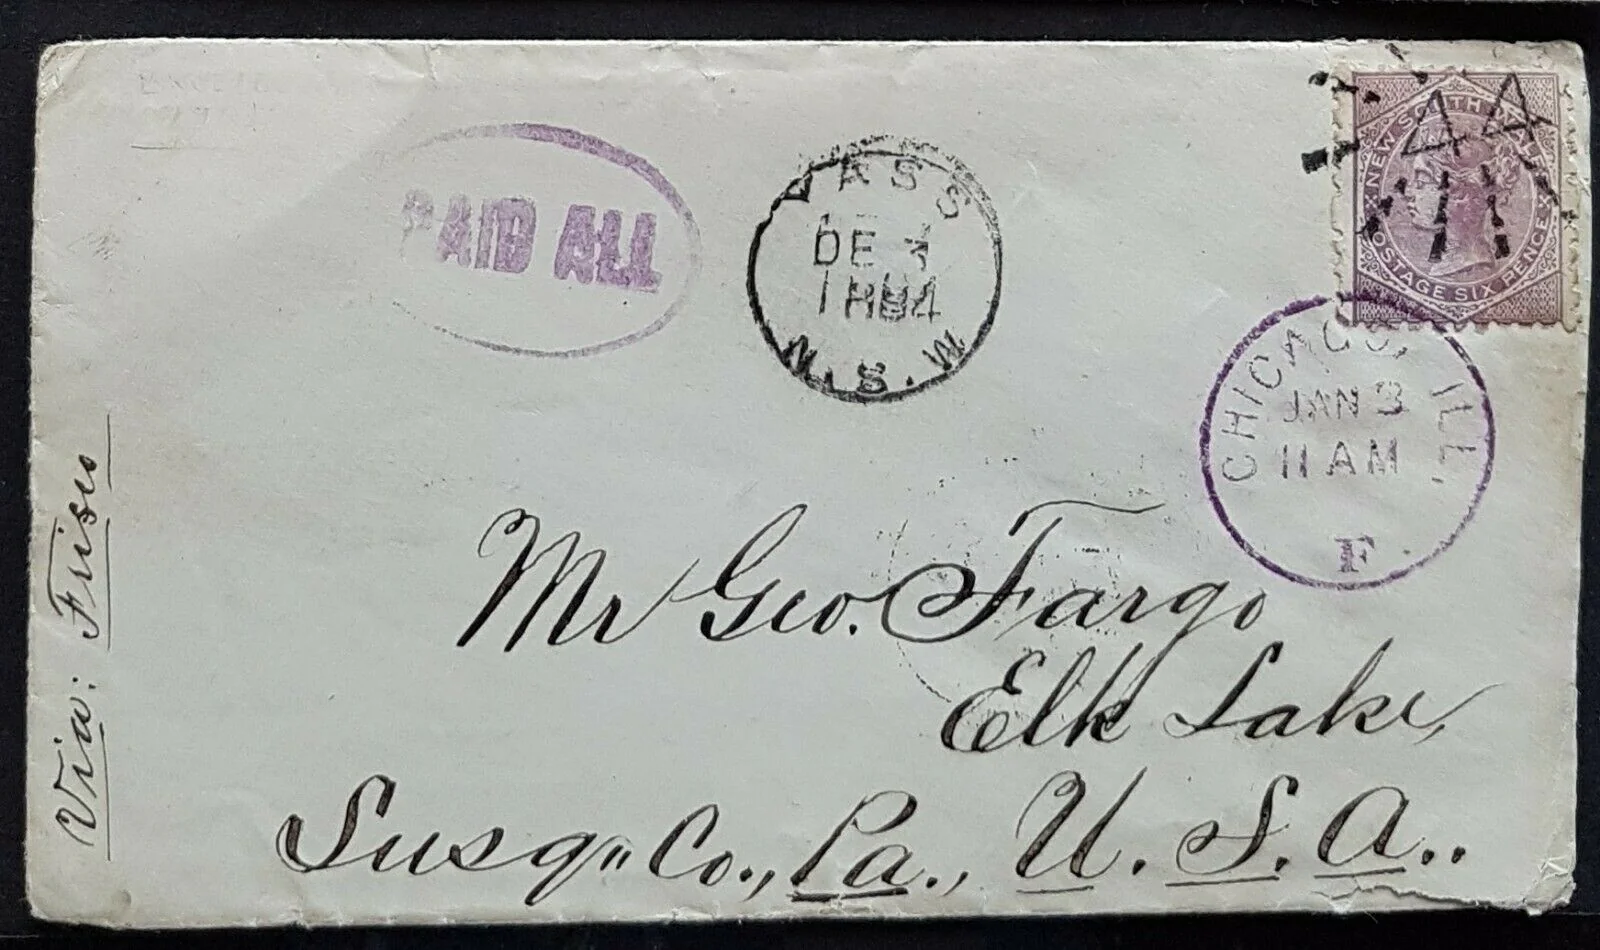 PAID ALL
VASS
DE
1884
N.S.W
NEW SOUTH WALES
POSTAGE SIX PENCE
CHICAGO, ILL.
JAN 3
11 AM
F
Via: Frisco
Mr Geo. Fargo
Elk Lake,
Susq" Co., Pa., U.S.A..